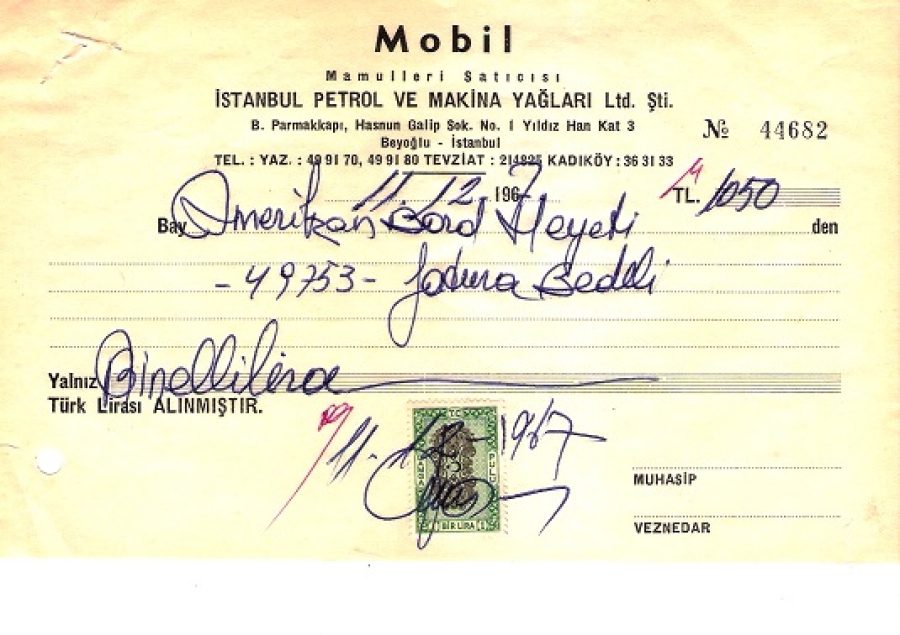 Mobil
Mamulleri Satıcısı
İSTANBUL PETROL VE MAKİNA YAĞLARI Ltd. Şti.
B. Parmakkapı, Hasnun Galip Sok. No. 1 Yıldız Han Kat 3
Beyoğlu - İstanbul
№ 44682
TEL. : YAZ. : 49 91 70, 49 91 80 TEVZİAT : 214825 KADIKÖY : 36 31 33
11.12.1967 TL. 1050
Bay Amerikan Bord Heyeti den
-49753- fatura Bedeli
Yalnız Binellilira
Türk Lirası ALINMIŞTIR.
T.C.
11-12-1967
PULU
BİR LİRA
MUHASİP
VEZNEDAR